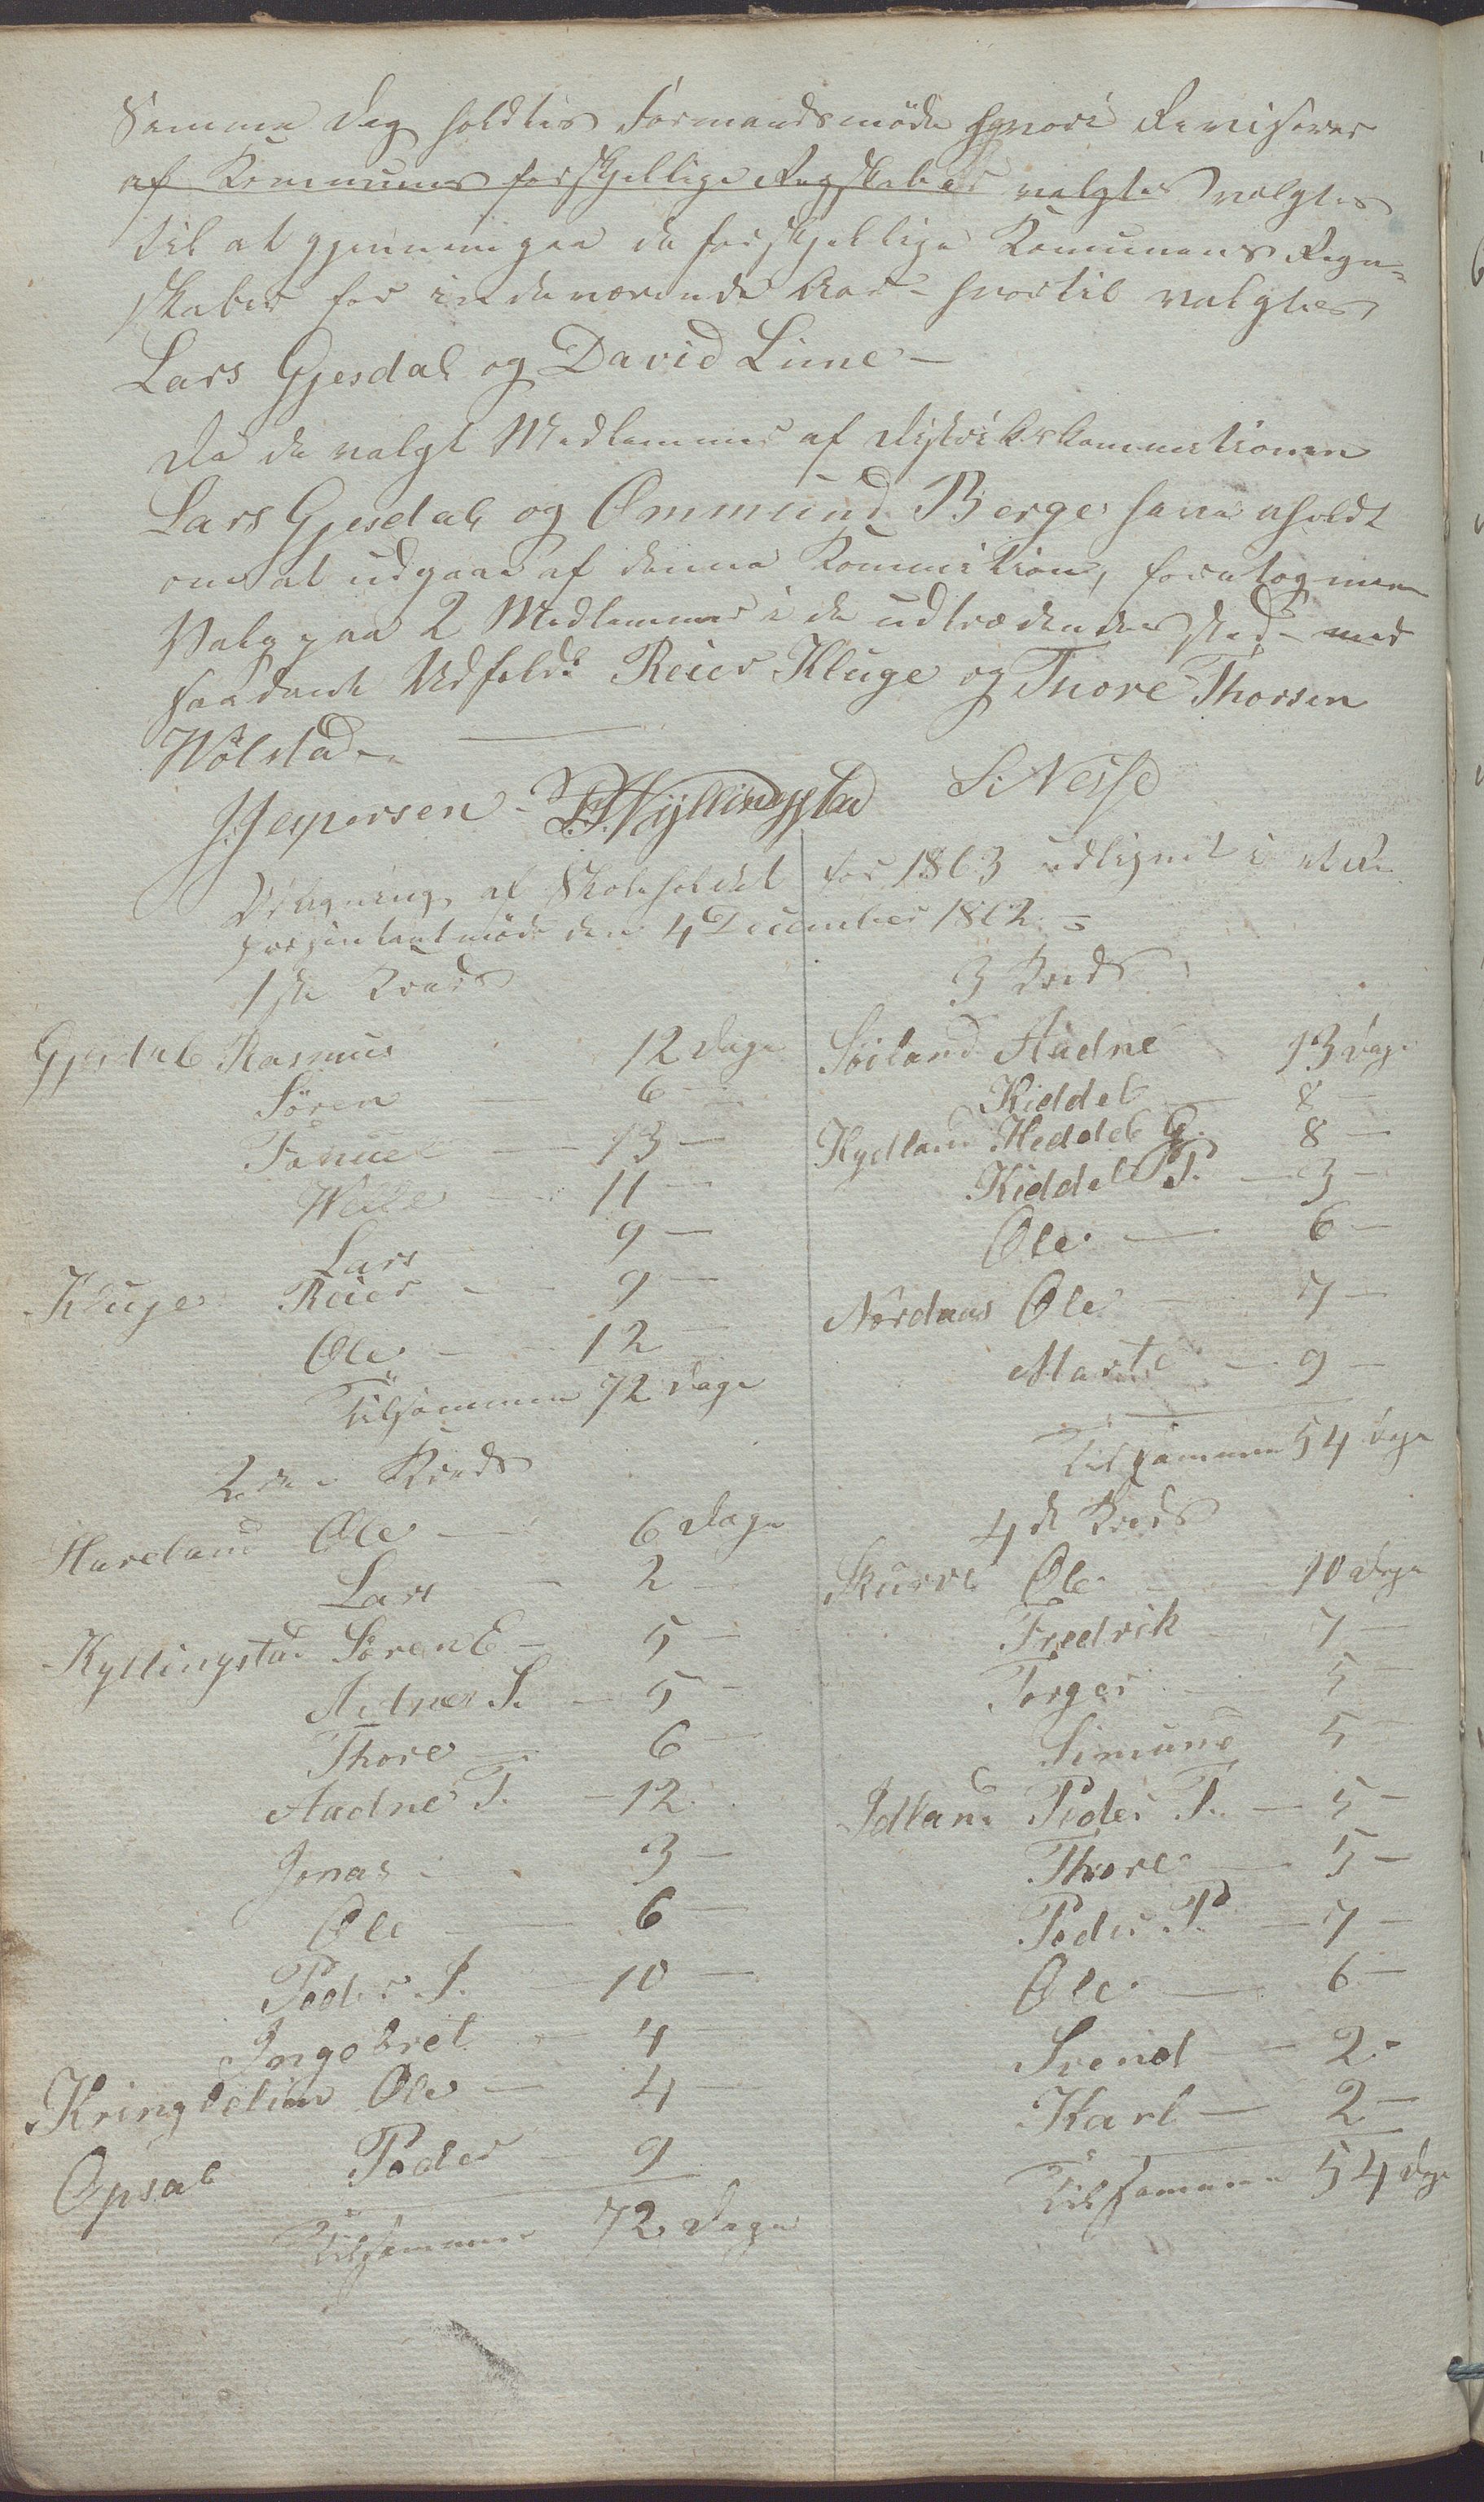 Samme Dag holdtes Formandsmöde hvori Revisorer
af Kommunens forskjellige Regskaber valgtes valgtes
til at gjennemgaa de forskjellige Komunens Regn-
skaber for indeværende Aar - hvortil valgtes
Lars Gjesdal og David Lime -
Da de valgt Medlemmer af Distriktskommitionen
Lars Gjesdal og Ommund Berge have aholdt
om at udgaae af denne Kommition, foretog man
Valg paa 2 Medlemmer i de udtrædendes sted - med
saadant Udfald: Reier Kluge og Tnore Thorsen
Wölstad.
J. Jespersen - Kyllingstad S. Nesse
Udligning af Skoleholdet for 1863 udlignet i et Re
presentantmöde den 4 December 1862 =
1ste Kreds
Gjesdal Rasmus 12 Dage
Sören — 6 —
Tønnes — 13 —
Wille — 11 —
Lars 9 —
Kluge Reier — 9 —
Ole — 12 —
Tilsammen 72 Dage
2den Kreds
Haveland Ole — 6 Dage
Lars — 2 —
Kyllingstad Sören E — 5 —
Adne S. — 5 —
Thore — 6 —
Aadne T. — 12
Jonas — 3 —
Ole — 6 —
Peder S. — 10 —
Ingebret — 4 —
Kringlelien Ole — 4 —
Opsal Peder — 9
Tilsammen 72 Dage
3 Kreds
Söiland Aadne 13 Dage
Kiddel — 8 —
Kydland Heddel G. 8 —
Kiddel T. — 3 —
Ole — 6 —
Nordaas Ole — 7 —
Marte — 9 —
Tilsammen 54 Dage
4de Kreds
Skurve Ole — 10 Dage
Fredrik 7 —
Torger — 5 —
Simund 5 —
Idland Peder T. — 5 —
Thore — 5 —
Peder P. — 7 —
Ole — 6 —
Svend — 2 -
Karl — 2 —
Tilsammen 54 Dage